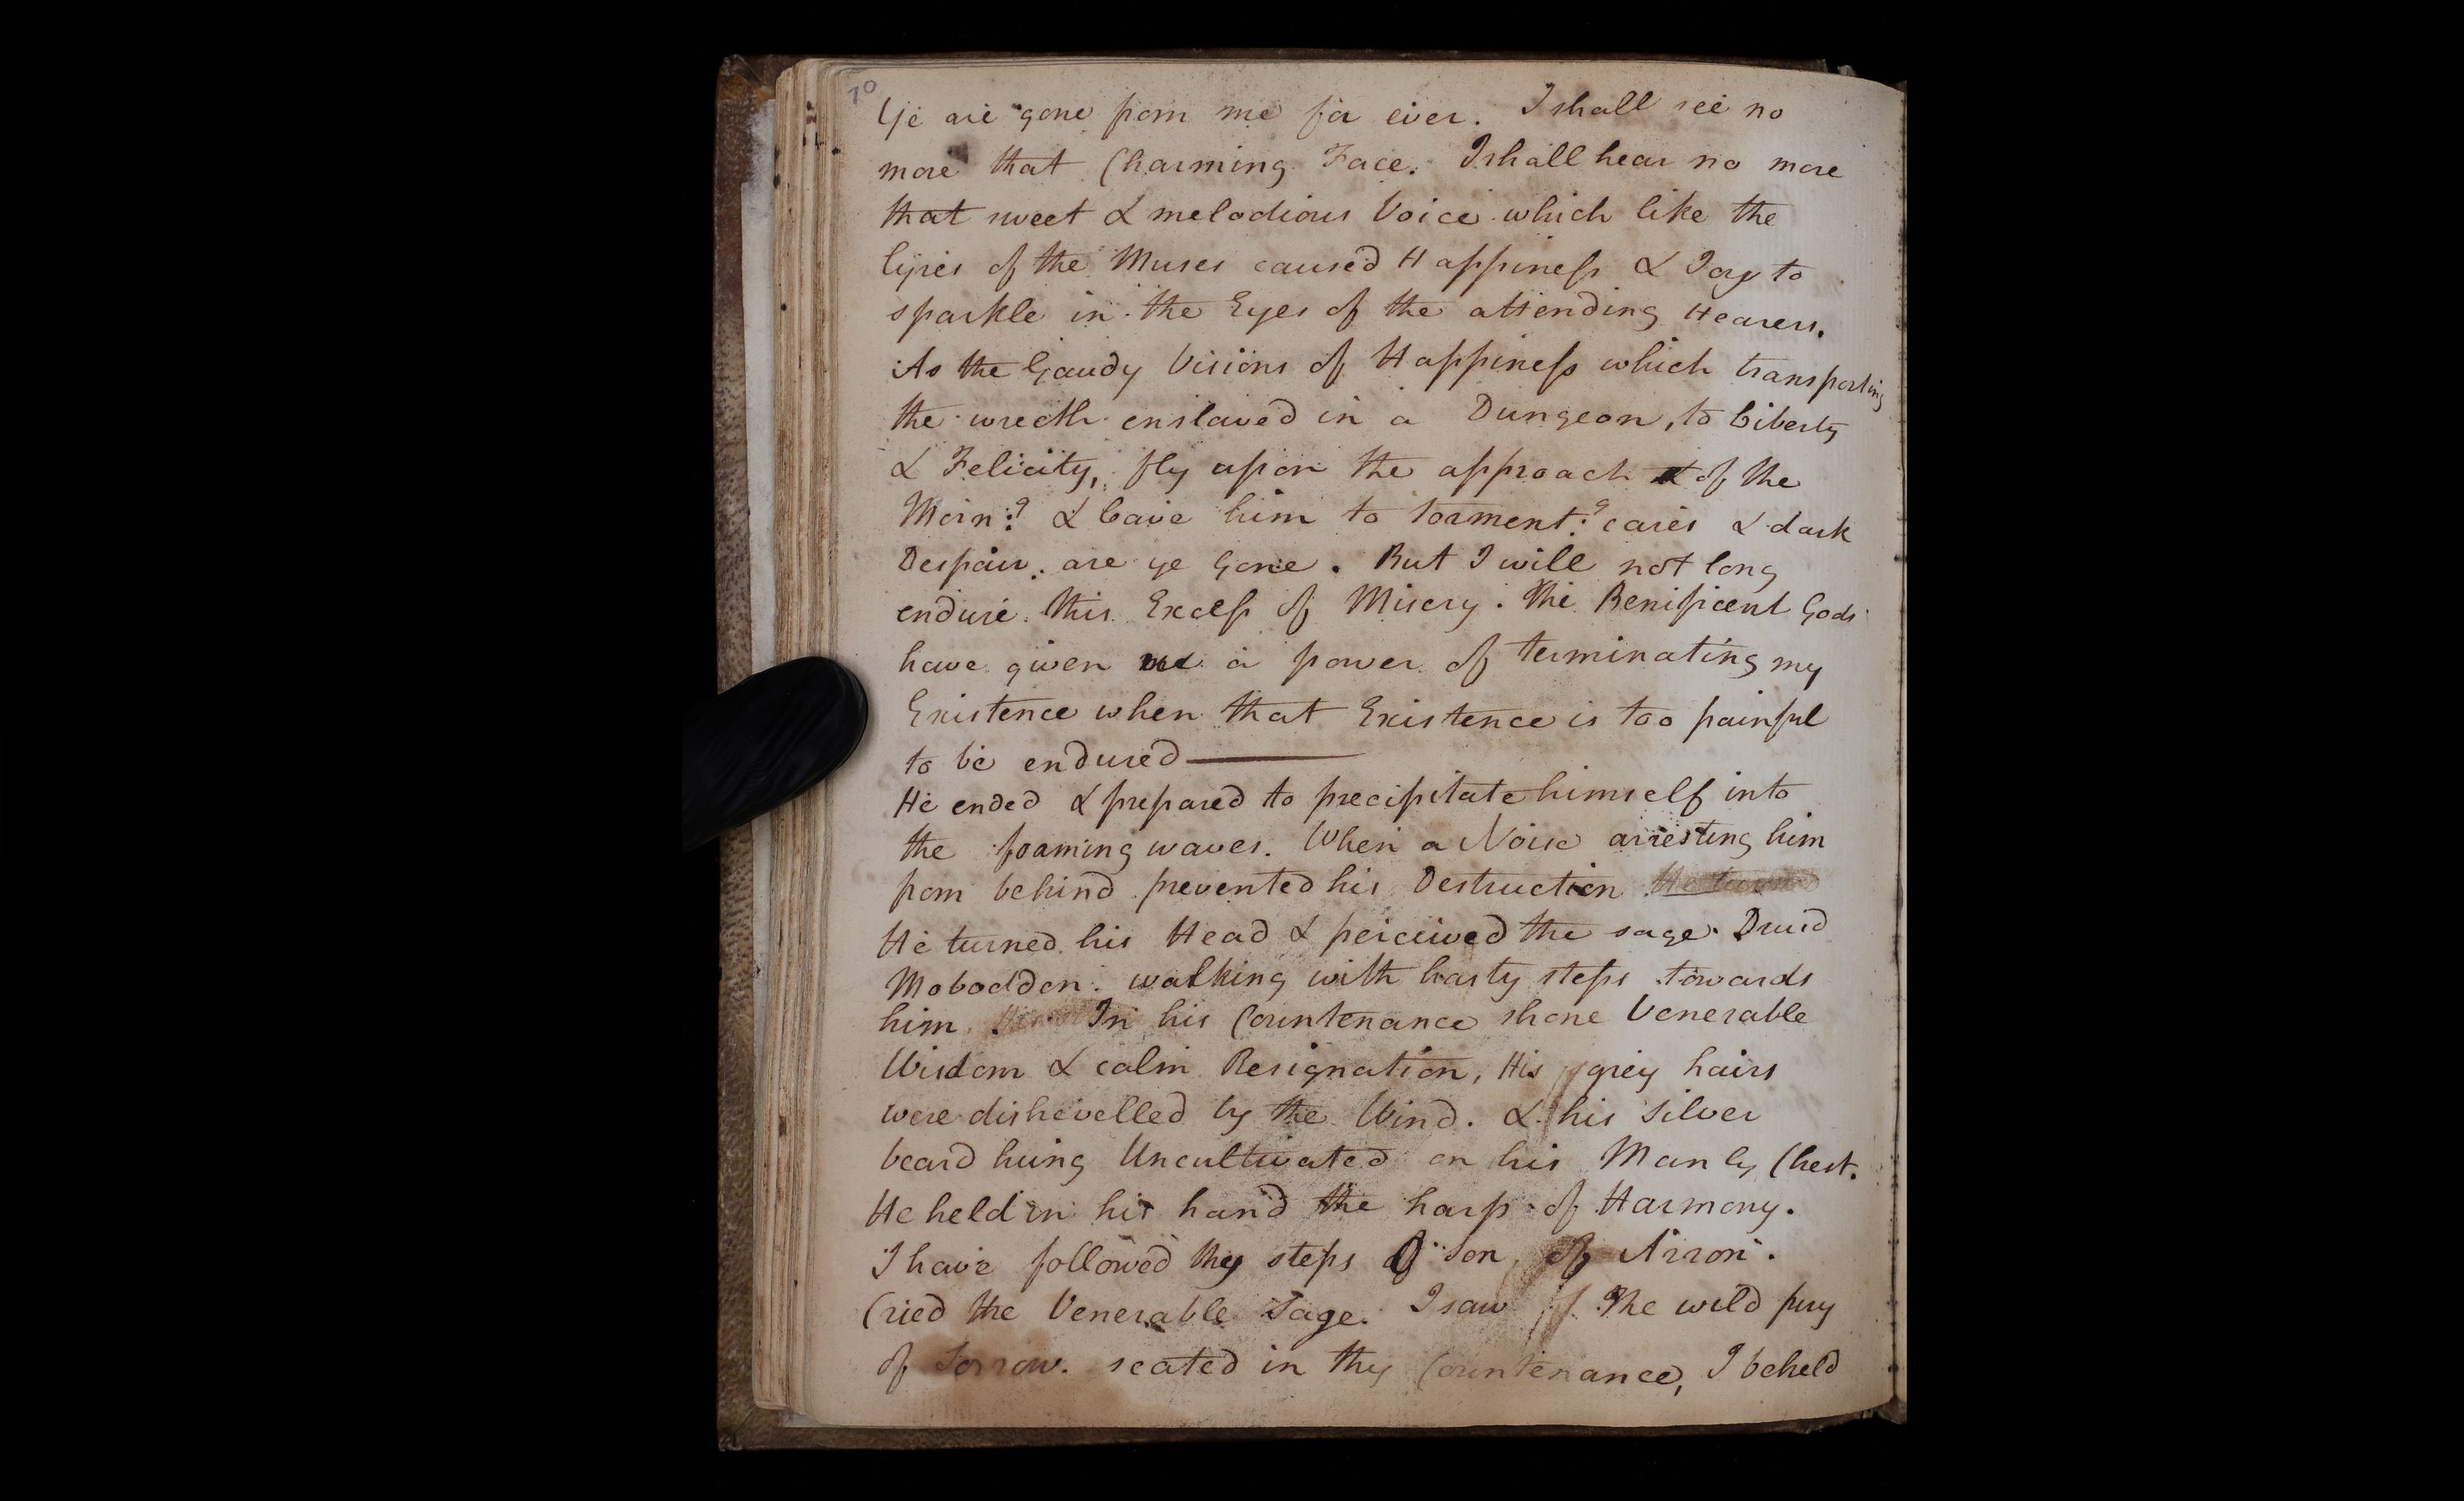 70
Ye are gone from me for ever. I shall see no
more that Charming Face. I shall hear no more
that sweet & melodious Voice which like the
lyres of the Muses caused Happiness & Joy to
sparkle in the Eyes of the attending Hearers.
As the Gaudy Visions of Happiness which transporting
the wrecth enslaved in a Dungeon, to Liberty
& Felicity, fly upon the approach of the
Morn? & leave him to torment? cares & dark
Despair. are ye Gone. But I will not long
endure this Excess of Misery. The Benificent Gods
have given me a power of terminating my
Existence when that Existence is too painful
to be endured ———
He ended & prepared to precipitate himself into
the foaming waves. When a Noise arresting him
from behind prevented his Destruction He turned
He turned his Head & perceived the sage Druid
Mobodden. walking with hasty steps towards
him. In his Countenance shone Venerable
Wisdom & calm Resignation, His grey hairs
were dishevelled by the Wind. & his silver
beard hung Uncultivated on his Manly Chest.
He held in his hand the harp of Harmony.
I have followed thy steps O son of Arron.
Cried the Venerable Sage. I saw The wild fury
of Sorrow. seated in thy Countenance, I beheld